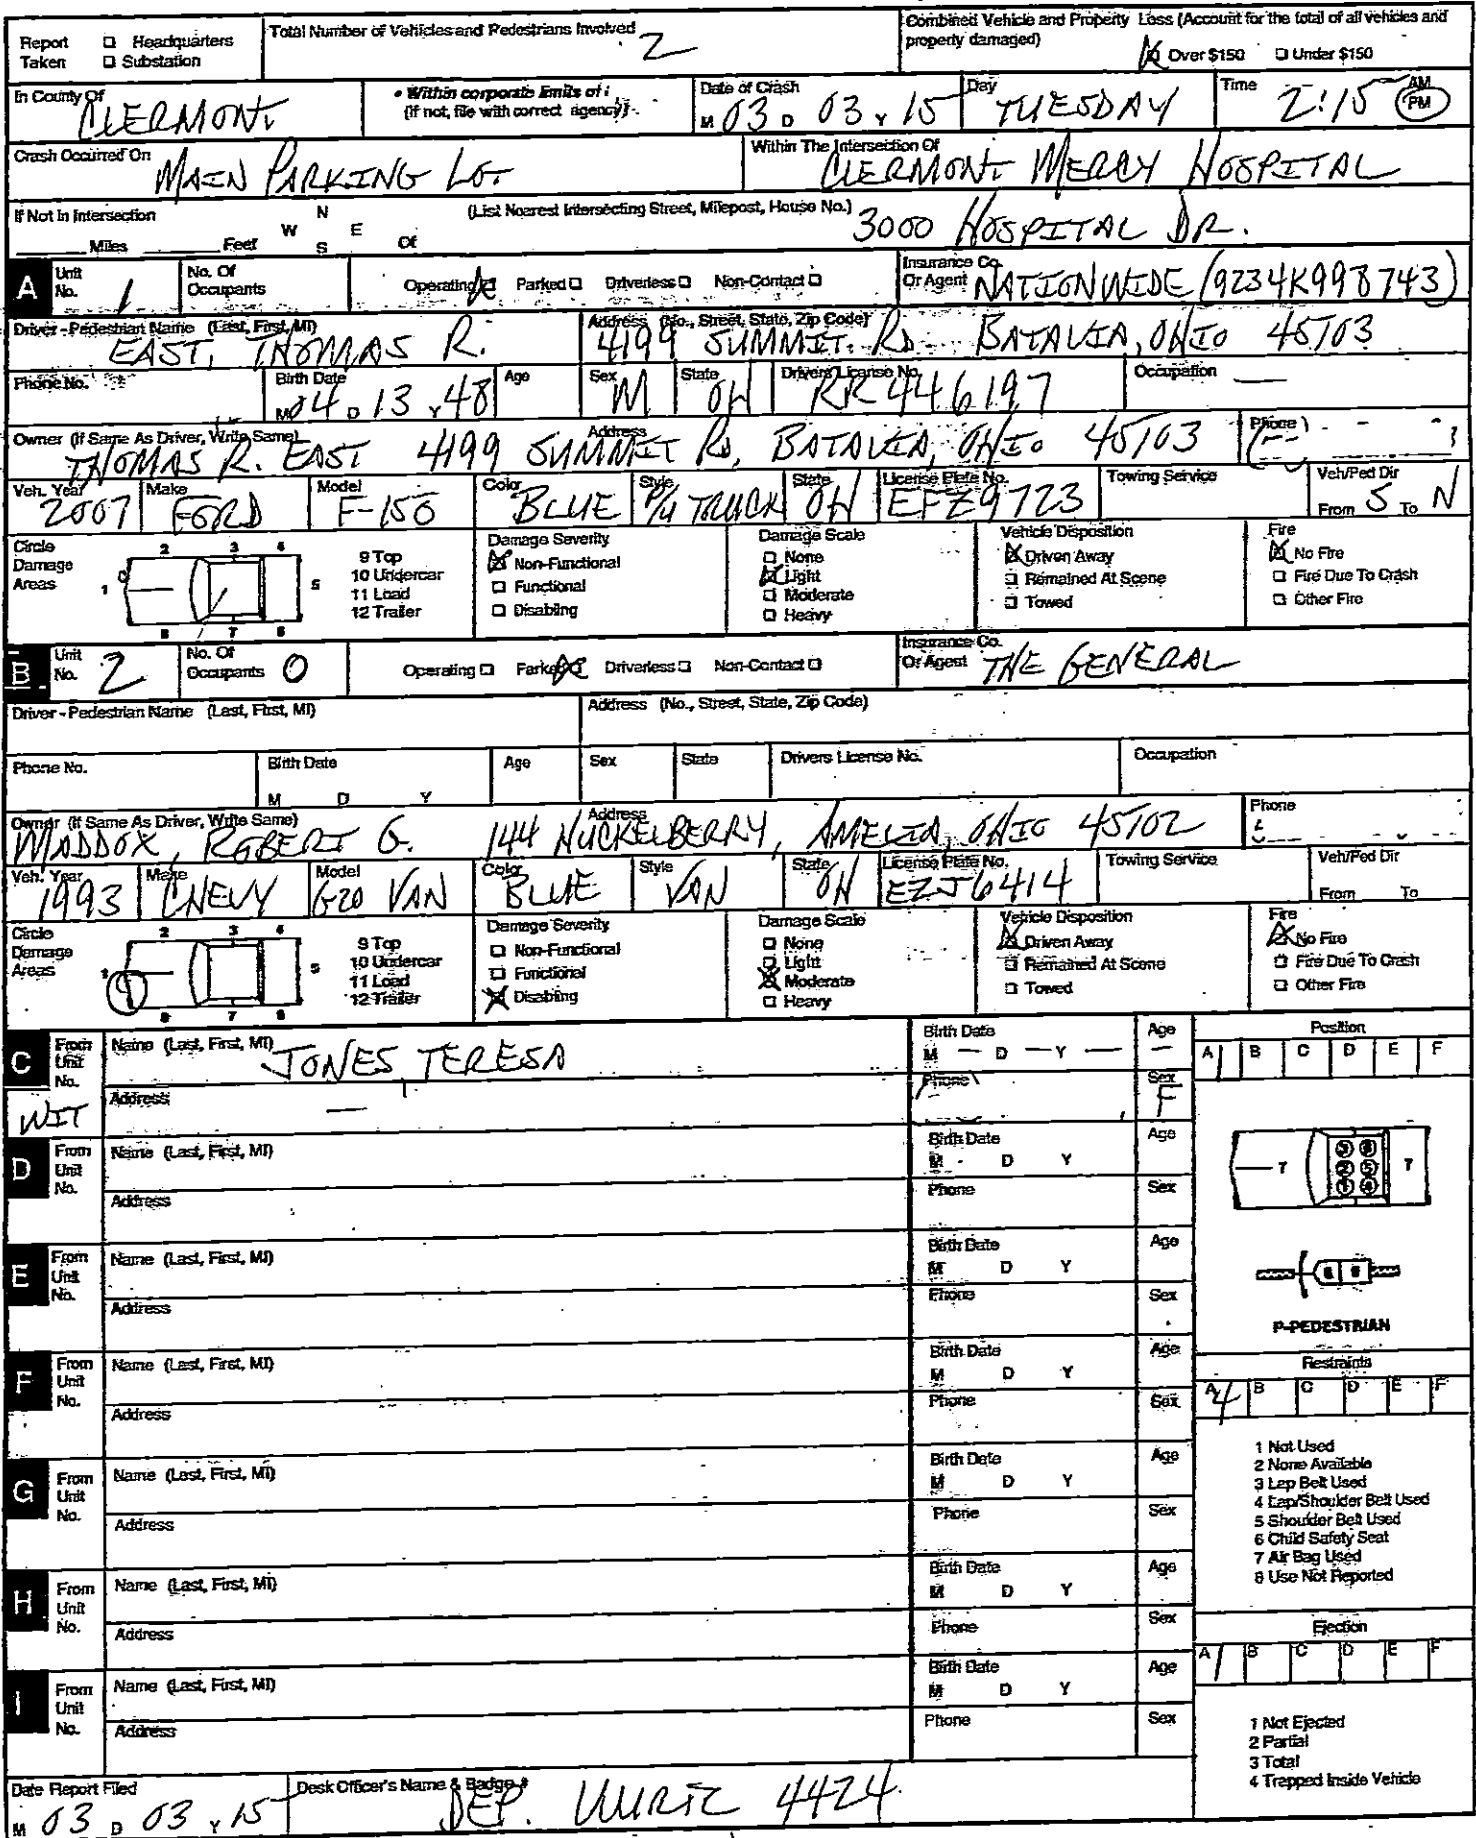 Report Taken ☐ Headquarters ☐ Substation
Total Number of Vehicles and Pedestrians Involved 2
Combined Vehicle and Property Loss (Account for the total of all vehicles and property damaged)
☒ Over $150 ☐ Under $150
In County Of CLERMONT
• Within corporate limits of:
(If not, file with correct agency)
Date of Crash M 03 D 03 Y 15
Day TUESDAY
Time 2:15 AM PM
Crash Occurred On MAIN PARKING LOT
Within The Intersection Of CLERMONT MERCY HOSPITAL
If Not In Intersection
____ Miles ____ Feet N W E S Of
(List Nearest Intersecting Street, Milepost, House No.) 3000 HOSPITAL DR.
A Unit No. 1
No. Of Occupants
Operating ☒ Parked ☐ Driverless ☐ Non-Contact ☐
Insurance Co. Or Agent NATIONWIDE (9234K998743)
Driver - Pedestrian Name (Last, First, MI) EAST, THOMAS R.
Address (No., Street, State, Zip Code) 4199 SUMMIT RD BATAVIA, OHIO 45103
Phone No.
Birth Date M 04 D 13 Y 48
Age
Sex M
State OH
Drivers License No. RR446197
Occupation —
Owner (If Same As Driver, Write Same) THOMAS R. EAST
Address 4199 SUMMIT RD, BATAVIA, OHIO 45103
Phone
Veh. Year 2007
Make FORD
Model F-150
Color BLUE
Style P/U TRUCK
State OH
License Plate No. EFZ9723
Towing Service
Veh/Ped Dir From S To N
Circle Damage Areas
1 2 3 4 5 6 7 8
9 Top
10 Undercar
11 Load
12 Trailer
Damage Severity
☒ Non-Functional
☐ Functional
☐ Disabling
Damage Scale
☐ None
☒ Light
☐ Moderate
☐ Heavy
Vehicle Disposition
☒ Driven Away
☐ Remained At Scene
☐ Towed
Fire
☒ No Fire
☐ Fire Due To Crash
☐ Other Fire
B Unit No. 2
No. Of Occupants 0
Operating ☐ Parked ☒ Driverless ☐ Non-Contact ☐
Insurance Co. Or Agent THE GENERAL
Driver - Pedestrian Name (Last, First, MI)
Address (No., Street, State, Zip Code)
Phone No.
Birth Date M D Y
Age
Sex
State
Drivers License No.
Occupation
Owner (If Same As Driver, Write Same) MADDOX, ROBERT G.
Address 144 HUCKELBERRY, AMELIA, OHIO 45102
Phone
Veh. Year 1993
Make CHEVY
Model G20 VAN
Color BLUE
Style VAN
State OH
License Plate No. EZJ6414
Towing Service
Veh/Ped Dir From To
Circle Damage Areas
1 2 3 4 5 6 7 8
9 Top
10 Undercar
11 Load
12 Trailer
Damage Severity
☐ Non-Functional
☐ Functional
☒ Disabling
Damage Scale
☐ None
☐ Light
☒ Moderate
☐ Heavy
Vehicle Disposition
☒ Driven Away
☐ Remained At Scene
☐ Towed
Fire
☒ No Fire
☐ Fire Due To Crash
☐ Other Fire
C From Unit No. WIT
Name (Last, First, MI) JONES, TERESA
Birth Date M — D — Y —
Age —
Address —
Phone
Sex F
D From Unit No.
Name (Last, First, MI)
Birth Date M D Y
Age
Address
Phone
Sex
E From Unit No.
Name (Last, First, MI)
Birth Date M D Y
Age
Address
Phone
Sex
F From Unit No.
Name (Last, First, MI)
Birth Date M D Y
Age
Address
Phone
Sex
G From Unit No.
Name (Last, First, MI)
Birth Date M D Y
Age
Address
Phone
Sex
H From Unit No.
Name (Last, First, MI)
Birth Date M D Y
Age
Address
Phone
Sex
I From Unit No.
Name (Last, First, MI)
Birth Date M D Y
Age
Address
Phone
Sex
Position
A 1 B C D E F
7 7
P-PEDESTRIAN
Restraints
A 4 B C D E F
1 Not Used
2 None Available
3 Lap Belt Used
4 Lap/Shoulder Belt Used
5 Shoulder Belt Used
6 Child Safety Seat
7 Air Bag Used
8 Use Not Reported
Ejection
A 1 B C D E F
1 Not Ejected
2 Partial
3 Total
4 Trapped Inside Vehicle
Date Report Filed M 03 D 03 Y 15
Desk Officer's Name & Badge # DEP. 4424